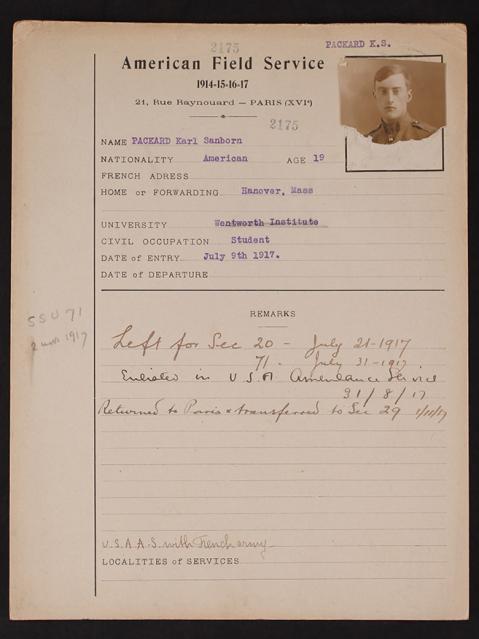 2175
PACKARD K.S.
American Field Service
1914-15-16-17
21, Rue Raynouard — PARIS (XVIe)
2175
NAME PACKARD Karl Sanborn
NATIONALITY American AGE 19
FRENCH ADRESS
HOME or FORWARDING Hanover, Mass
UNIVERSITY Wentworth Institute
CIVIL OCCUPATION Student
DATE of ENTRY July 9th 1917.
DATE of DEPARTURE
REMARKS
SSU 71
1917
Left for Sec 20 - July 21-1917
71 - July 31-1917
Enlisted in U S A Ambulance Service
31/8/17
Returned to Paris & transferred to Sec 29 1/11/17
U.S.A.A.S. with French army
LOCALITIES of SERVICES